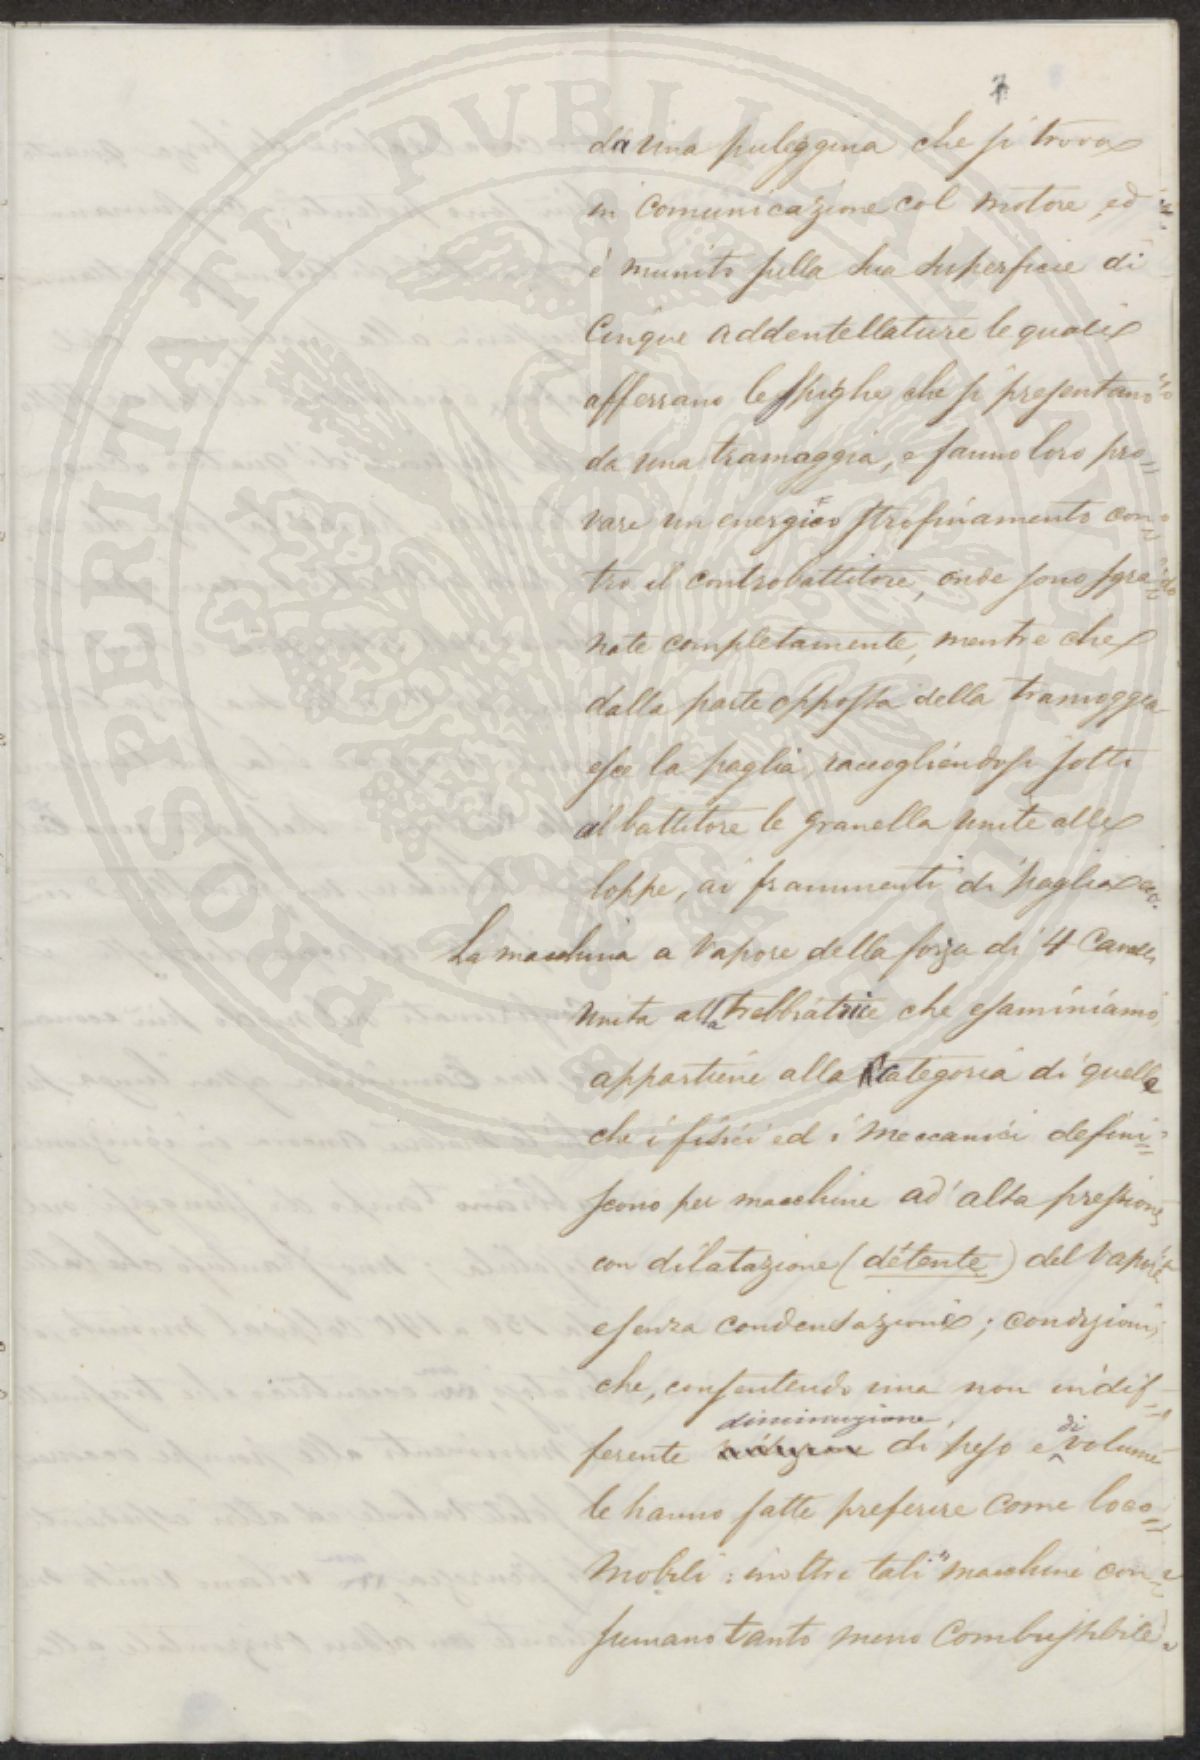 7
da una puleggina che si trova
in comunicazione col motore, ed
è munito sulla sua superficie di
cinque addentellature le quali
afferrano le spighe che si presentano
da una tramoggia, e fanno loro pro=
vare un energico strofinamento con=
tro il controbattitore, onde sono sgra=
nate completamente, mentre che
dalla parte opposta della tramoggia
esce la paglia, raccogliendosi sotto
al battitore le granella unite alle
loppe, ai frammenti di paglia ecc.
La macchina a vapore della forza di 4 Cavalli
unita alla trebbiatrice che esaminiamo,
appartiene alla categoria di quelle
che i fisici ed i meccanici defini=
scono per macchine ad alta pressione,
con dilatazione (détente) del vapore
e senza condensazione; condizioni,
che, consentendo una non indif=
diminuzione
ferente di peso e di volume
le hanno fatte preferire come loco=
mobili: inoltre tali macchine con=
sumano tanto meno combustibile
PROSPERITATI PUBLICAE AUGENDAE